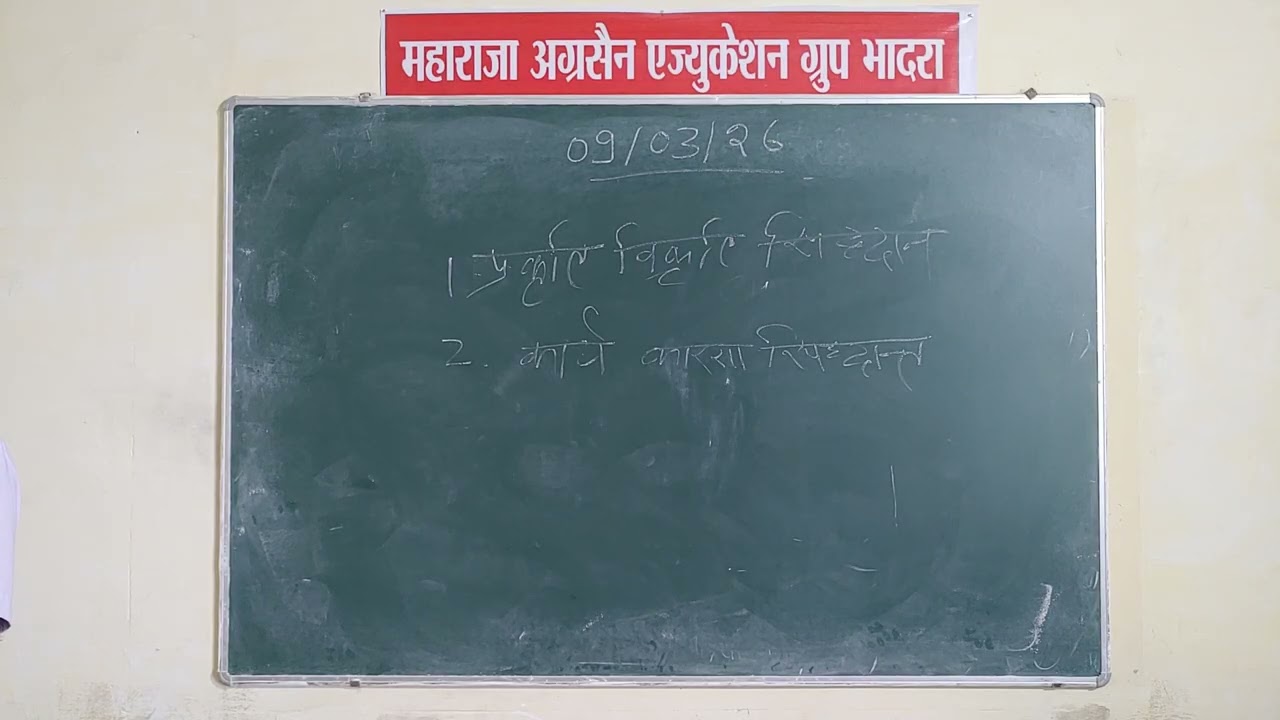 महाराजा अग्रसैन एज्युकेशन ग्रुप भादरा
09/03/26
1 प्रकृति विकृति सिद्दान
2. कार्य कारण सिध्दान्त
1)